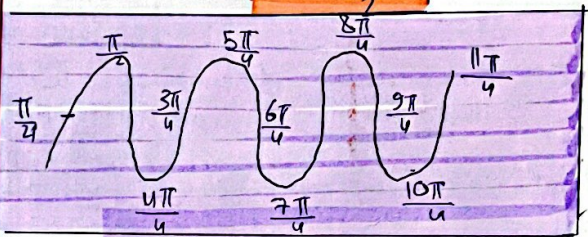 π/4
π
3π/4
4π/4
5π/4
6π/4
7π/4
8π/4
9π/4
10π/4
11π/4